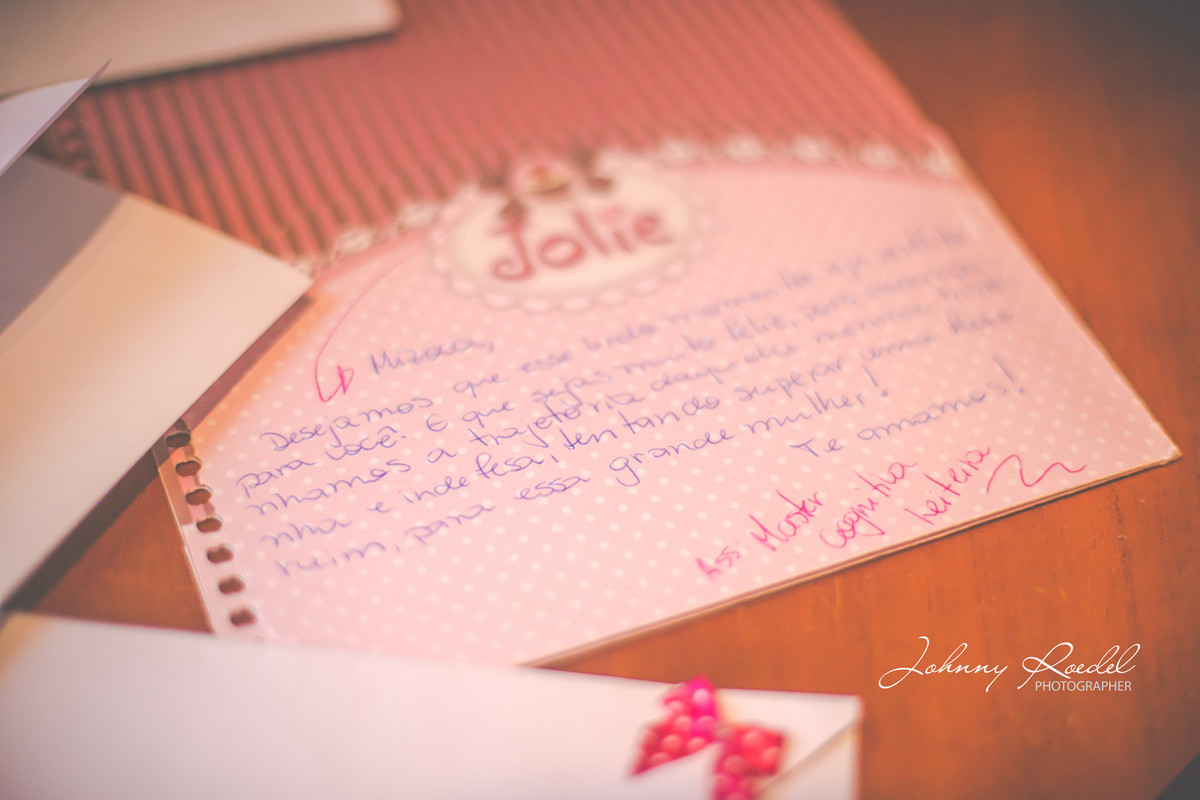 Jolie
Mizoca,
Desejamos que esse lindo momento seja
para você. E que sejas muito feliz, pois
nhamos a trajetória daquela menina
nha e indefesa, tentando superar uma fase
ruim, para essa grande mulher!
Te amamos!
Ass: Master
Cognitiva
Leiteira
Johnny Roedel
PHOTOGRAPHER